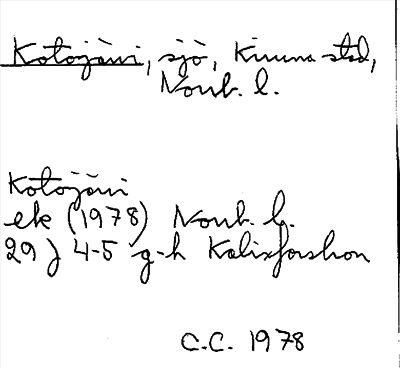 Kotojärvi, sjö, Kiruna std,
Norrb. l.
Kotojärvi
ek (1978) Norrb. l.
29 J 4-5 g-h Kalixforsbron
C.C. 1978